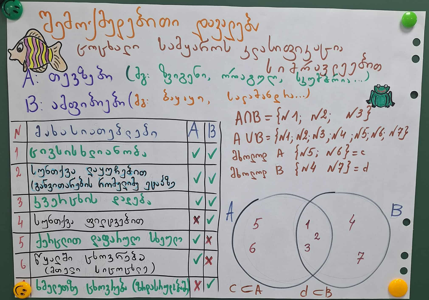 შემოქმედებითი დავალება
ცოცხალი სამყაროს კლასიფიკაცია
სიმრავლეებით
A: თევზები (მგ: ზვიგენი, ორაგული, სკუმბრია...)
B: ამფიბიები (მგ: ბაყაყი, სალამანდრა...)
N მახასიათებლები A B
1 ცივსისხლიანობა ✓ ✓
2 სუნთქვა ლაყუჩებით ✓ ✓
(განვითარების რომელიმე ეტაპზე)
3 კვერცხის დადება ✓ ✓
4 სუნთქვა ფილტვებით × ✓
5 ქერცლით დაფარული სხეული ✓ ×
6 წყალში ცხოვრება ✓ ×
(მთელი სიცოცხლე)
ხმელეთზე ცხოვრება (ზრდასრულობაში) × ✓
A∩B = {N1, N2, N3}
A∪B = {N1; N2; N3; N4; N5; N6; N7}
მხოლოდ A {N5; N6} = c
მხოლოდ B {N4 N7} = d
A B
5 1 4
2
6 3 7
C⊂A d⊂B